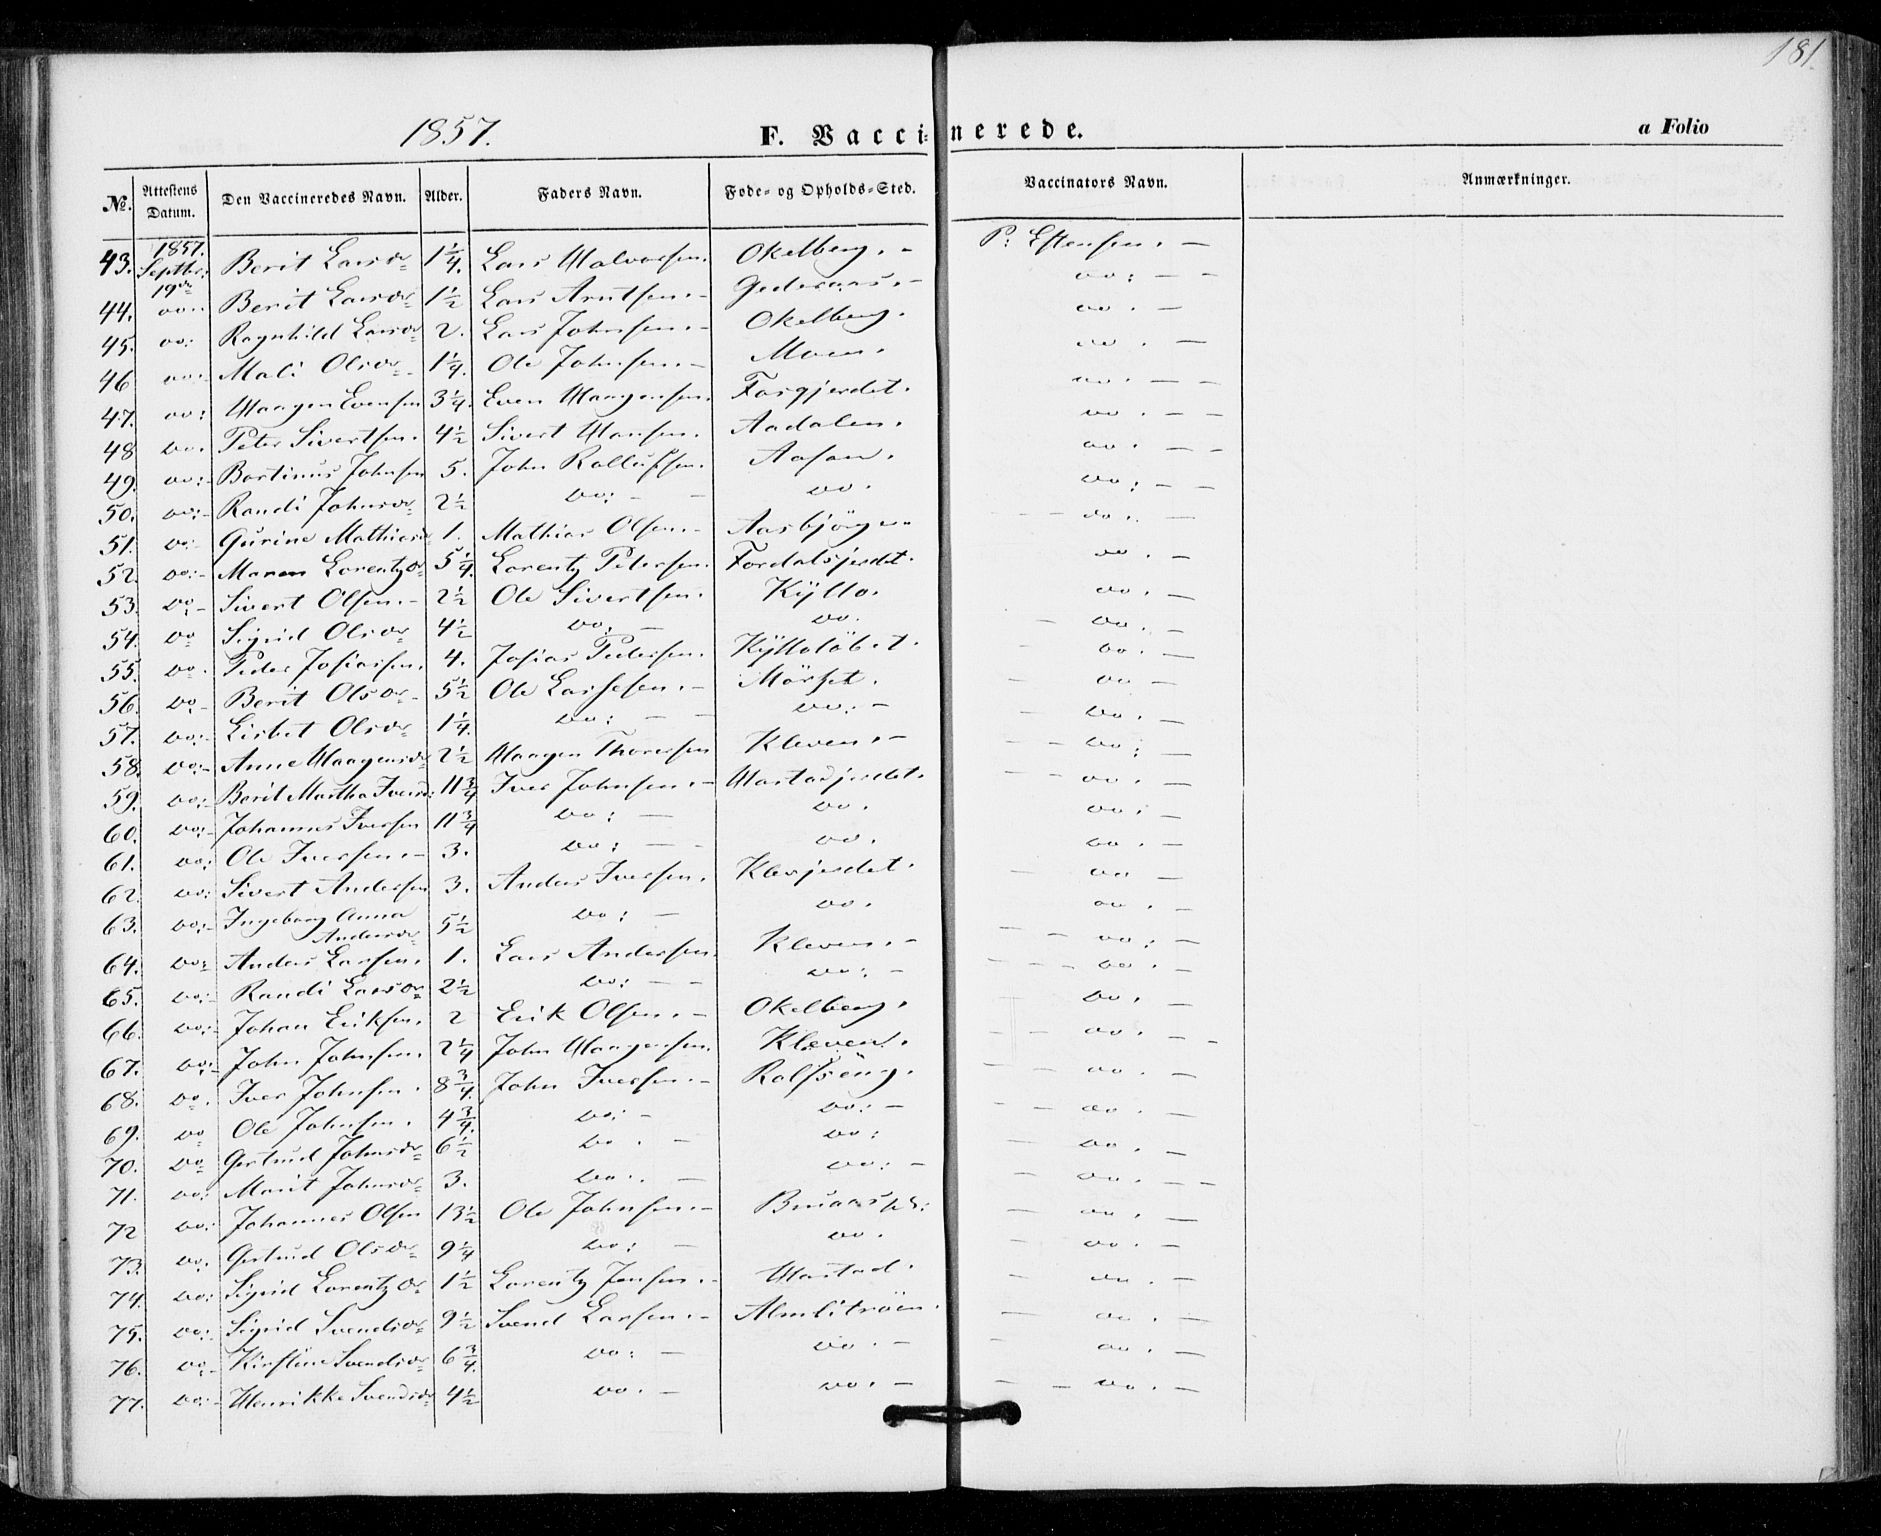 181.
1857. F. Vaccinerede. a Folio
No. Attestens Datum. Den Vaccineredes Navn. Alder. Faders Navn. Føde- og Opholds-Sted. Vaccinators Navn. Anmærkninger.
43. 1857. Septbr. 19de Berit Larsdr 1 1/4. Lars Halvorsen. Okelberg. - P: Estensen. -
44. do: Berit Larsdr 1 1/2 Lars Arntsen. - Gederaas. - do: - -
45. do: Ragnhild Larsdr 2. Lars Johnsen. - Okelberg. do. -
46 do: Mali Olsdr 1 1/4. Ole Johnsen. - Moen. do. -
47. do: Haagen Evensen 3 1/4. Even Haagensen. Forgjerdet. do. - -
48 do. Peter Sivertsen. 4 1/2 Sivert Hansen. Aadalen. do. - -
49. do: Bortinus Johnsen 5. John Rollufsen. Aasen. do. - -
50. do: Randi Johnsdr 2 1/2 do: - - do. do: - -
51. do: Gurine Mathiasd 1. Mathias Olsen. - Aasbjörgen - - do. -
52. do: - Maren Lorentzdr 5 1/4. Lorentz Petersen. Fordalsjerdet. do. -
53. do - Sivert Olsen. - 2 1/2 Ole Sivertsen. Kÿllo. do. -
54. do Sigrid Olsdr 4 1/2 do. - do. - do. -
55. do. Peder Josiassen. 4. Josias Pedersen. Kÿlloløbet. - do. -
56. do - Berit Olsdr - 5 1/2 Ole Larsesen. - Mörset. - do -
57. do: Lisbet Olsdr 1 1/4. do: - - do: - - do. -
58. do: - Anne Haagensdr 2 1/2 Haagen Thoresen Kleven. - - - do: -
59. do: Berit Martha Iversd: 11 3/4 Iver Johnsen. - Hastadjerdet. - - do. -
60. do: - Johannes Iversen 11 3/4 do: - do. do. -
61. do: Ole Iversen. - 3. do: - - do. do. -
62. do: Sivert Andersen 3. Anders Iversen. Klevjerdet. - do -
63. do: - Ingeborg Anna Andersdr 5 1/2 do: - do. do. -
64. do: Anders Larsen. 1. Lars Andersen. Kleven. - - - do: -
65. do: - Randi Larsdr 2 1/2 do: - - do: - - - - do. -
66. do: - Johan Eriksen. 2 Erik Olsen. - Okelberg. - do. -
67. do: John Johnsen. 2 1/4 John Haagensen. Kleven. - - do. - -
68. do. Iver Johnsen. 8 3/4. John Iversen. - Rolfsöng. - - do. -
69. do Ole Johnsen. 4 3/4. do: - do: - - - do. -
70. do Gertrud Johnsdr 6 1/2 do. - do: - do. -
71. do: Marit Johnsdr 3. do. - do: - - do. - -
72 do: Johannes Olsen 13 1/2 Ole Johnsen. - - do. -
73. do: Gertrud Olsdr 9 1/4 do: - do. - do. -
74. do: Sigrid Lorentzdr 1 1/2 Lorentz Jensen. - Hastad. - do. -
75. do: - Sigrid Svendsdr 9 1/2 Svend Larsen. - Almlitröen. - do. -
76. do - Kirstine Svendsdr 6 3/4. do: - do. - - do. -
77. do: - Henrikke Svendsdr 4 1/2 do. - do. - - - do. -